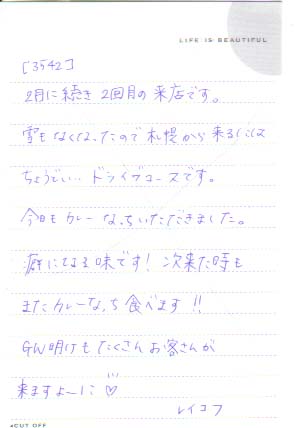 LIFE IS BEAUTIFUL
[3542]
2月に続き2回目の来店です。
雪もなくなったので札幌から来るには
ちょうどいいドライブコースです。
今日もカレーなっちいただきました。
癖になる味です! 次来た時も
またカレーなっち食べます!!
GW明けもたくさんお客さんが
来ますよーに♡
レイコフ
CUT OFF